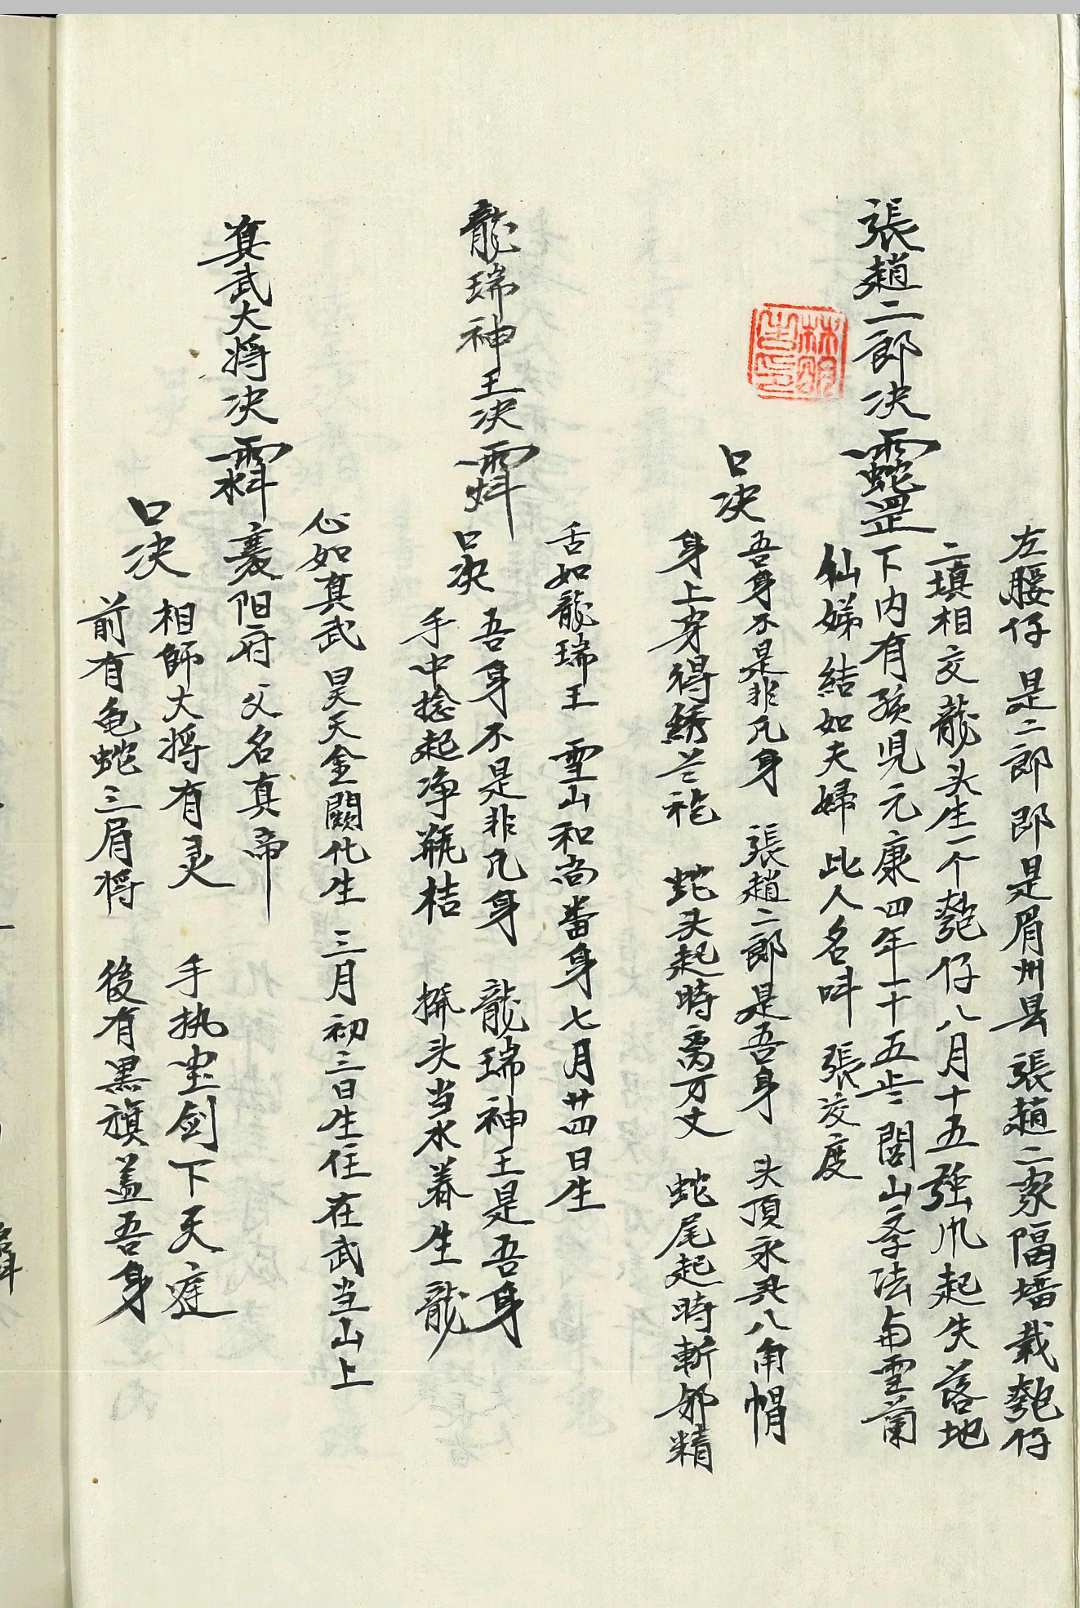 張趙二郎决
左腰仔 是二郎 郎是眉州县 張趙二家隔墙栽匏仔
二填相交龍头生一个匏仔八月十五强爪起失落地
下内有孩児元康四年一十五歩 閭山李法与雪蘭
仙娣 結如夫婦 此人名叫 張渡度
口决
吾身不是非凡身 張趙二郎是吾身 头頂永夹八角帽
身上穿得綉兰袍 蛇头起時离万丈 蛇尾起時斬邪精
龍瑞神王决
舌如龍瑞王 雪山和尚畨身七月廿四日生
口决
吾身不是非凡身 龍瑞神王是吾身
手中捻起净瓶桔 搟头当水养生龍
真武大将决
心如真武 昊天金闕化生 三月初三日生住在武当山上
襄阳府 父名真帝
口决
相師大将有灵 手执宝剑下天庭
前有龟蛇三眉将 後有黑旗盖吾身